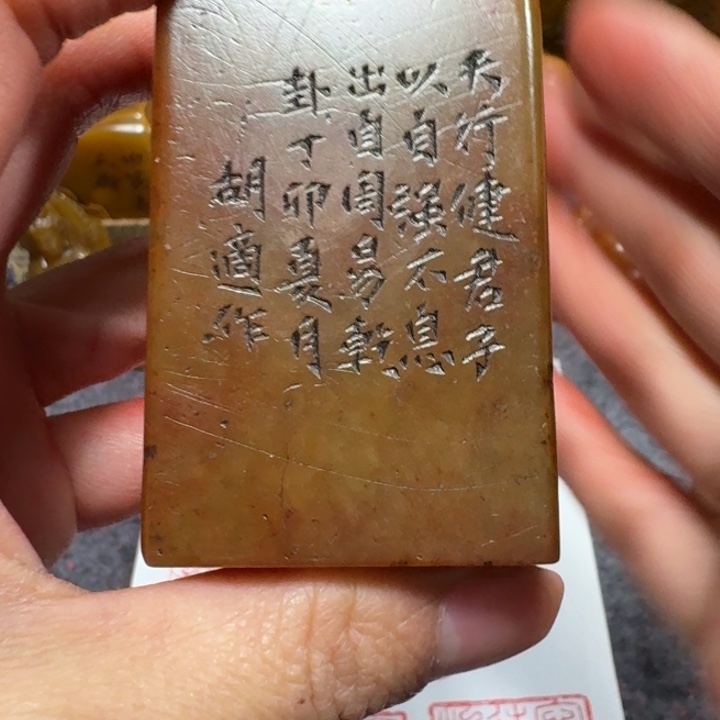 天行健君子
以自強不息
出自周易乾
卦丁卯夏月
胡適作